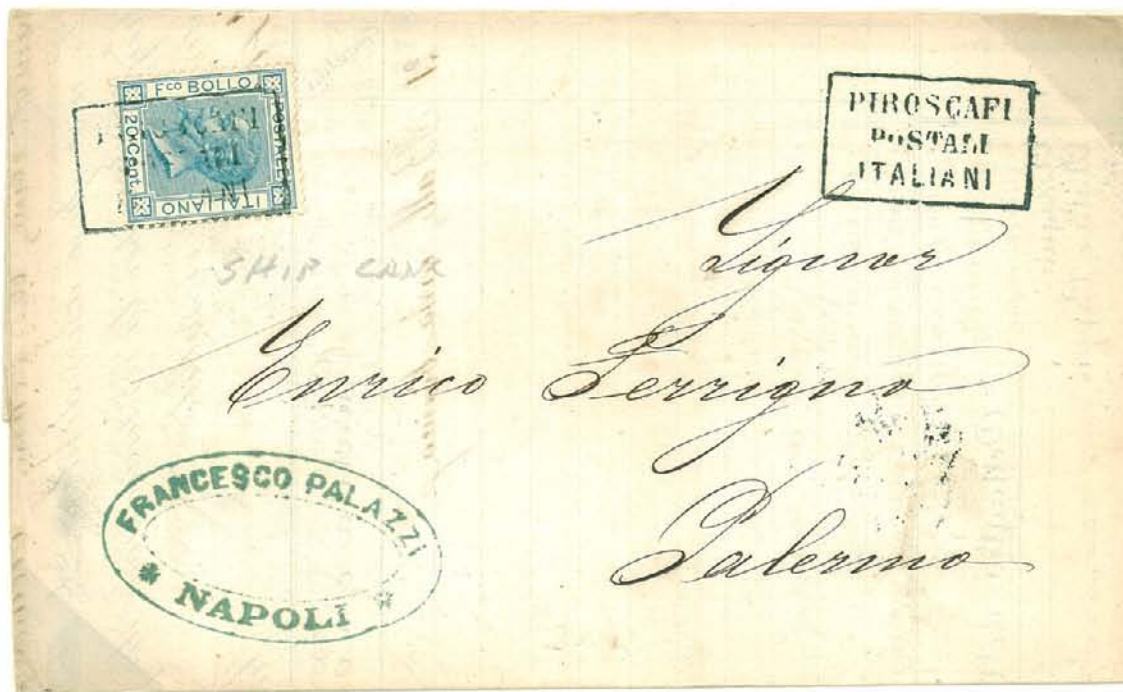 Fco BOLLO
POSTALE
20 Cent.
ITALIANO
PIROSCAFI
POSTALI
ITALIANI
SHIP CANC
Signor
Enrico Ferrigno
Palermo
FRANCESCO PALAZZI
* NAPOLI *